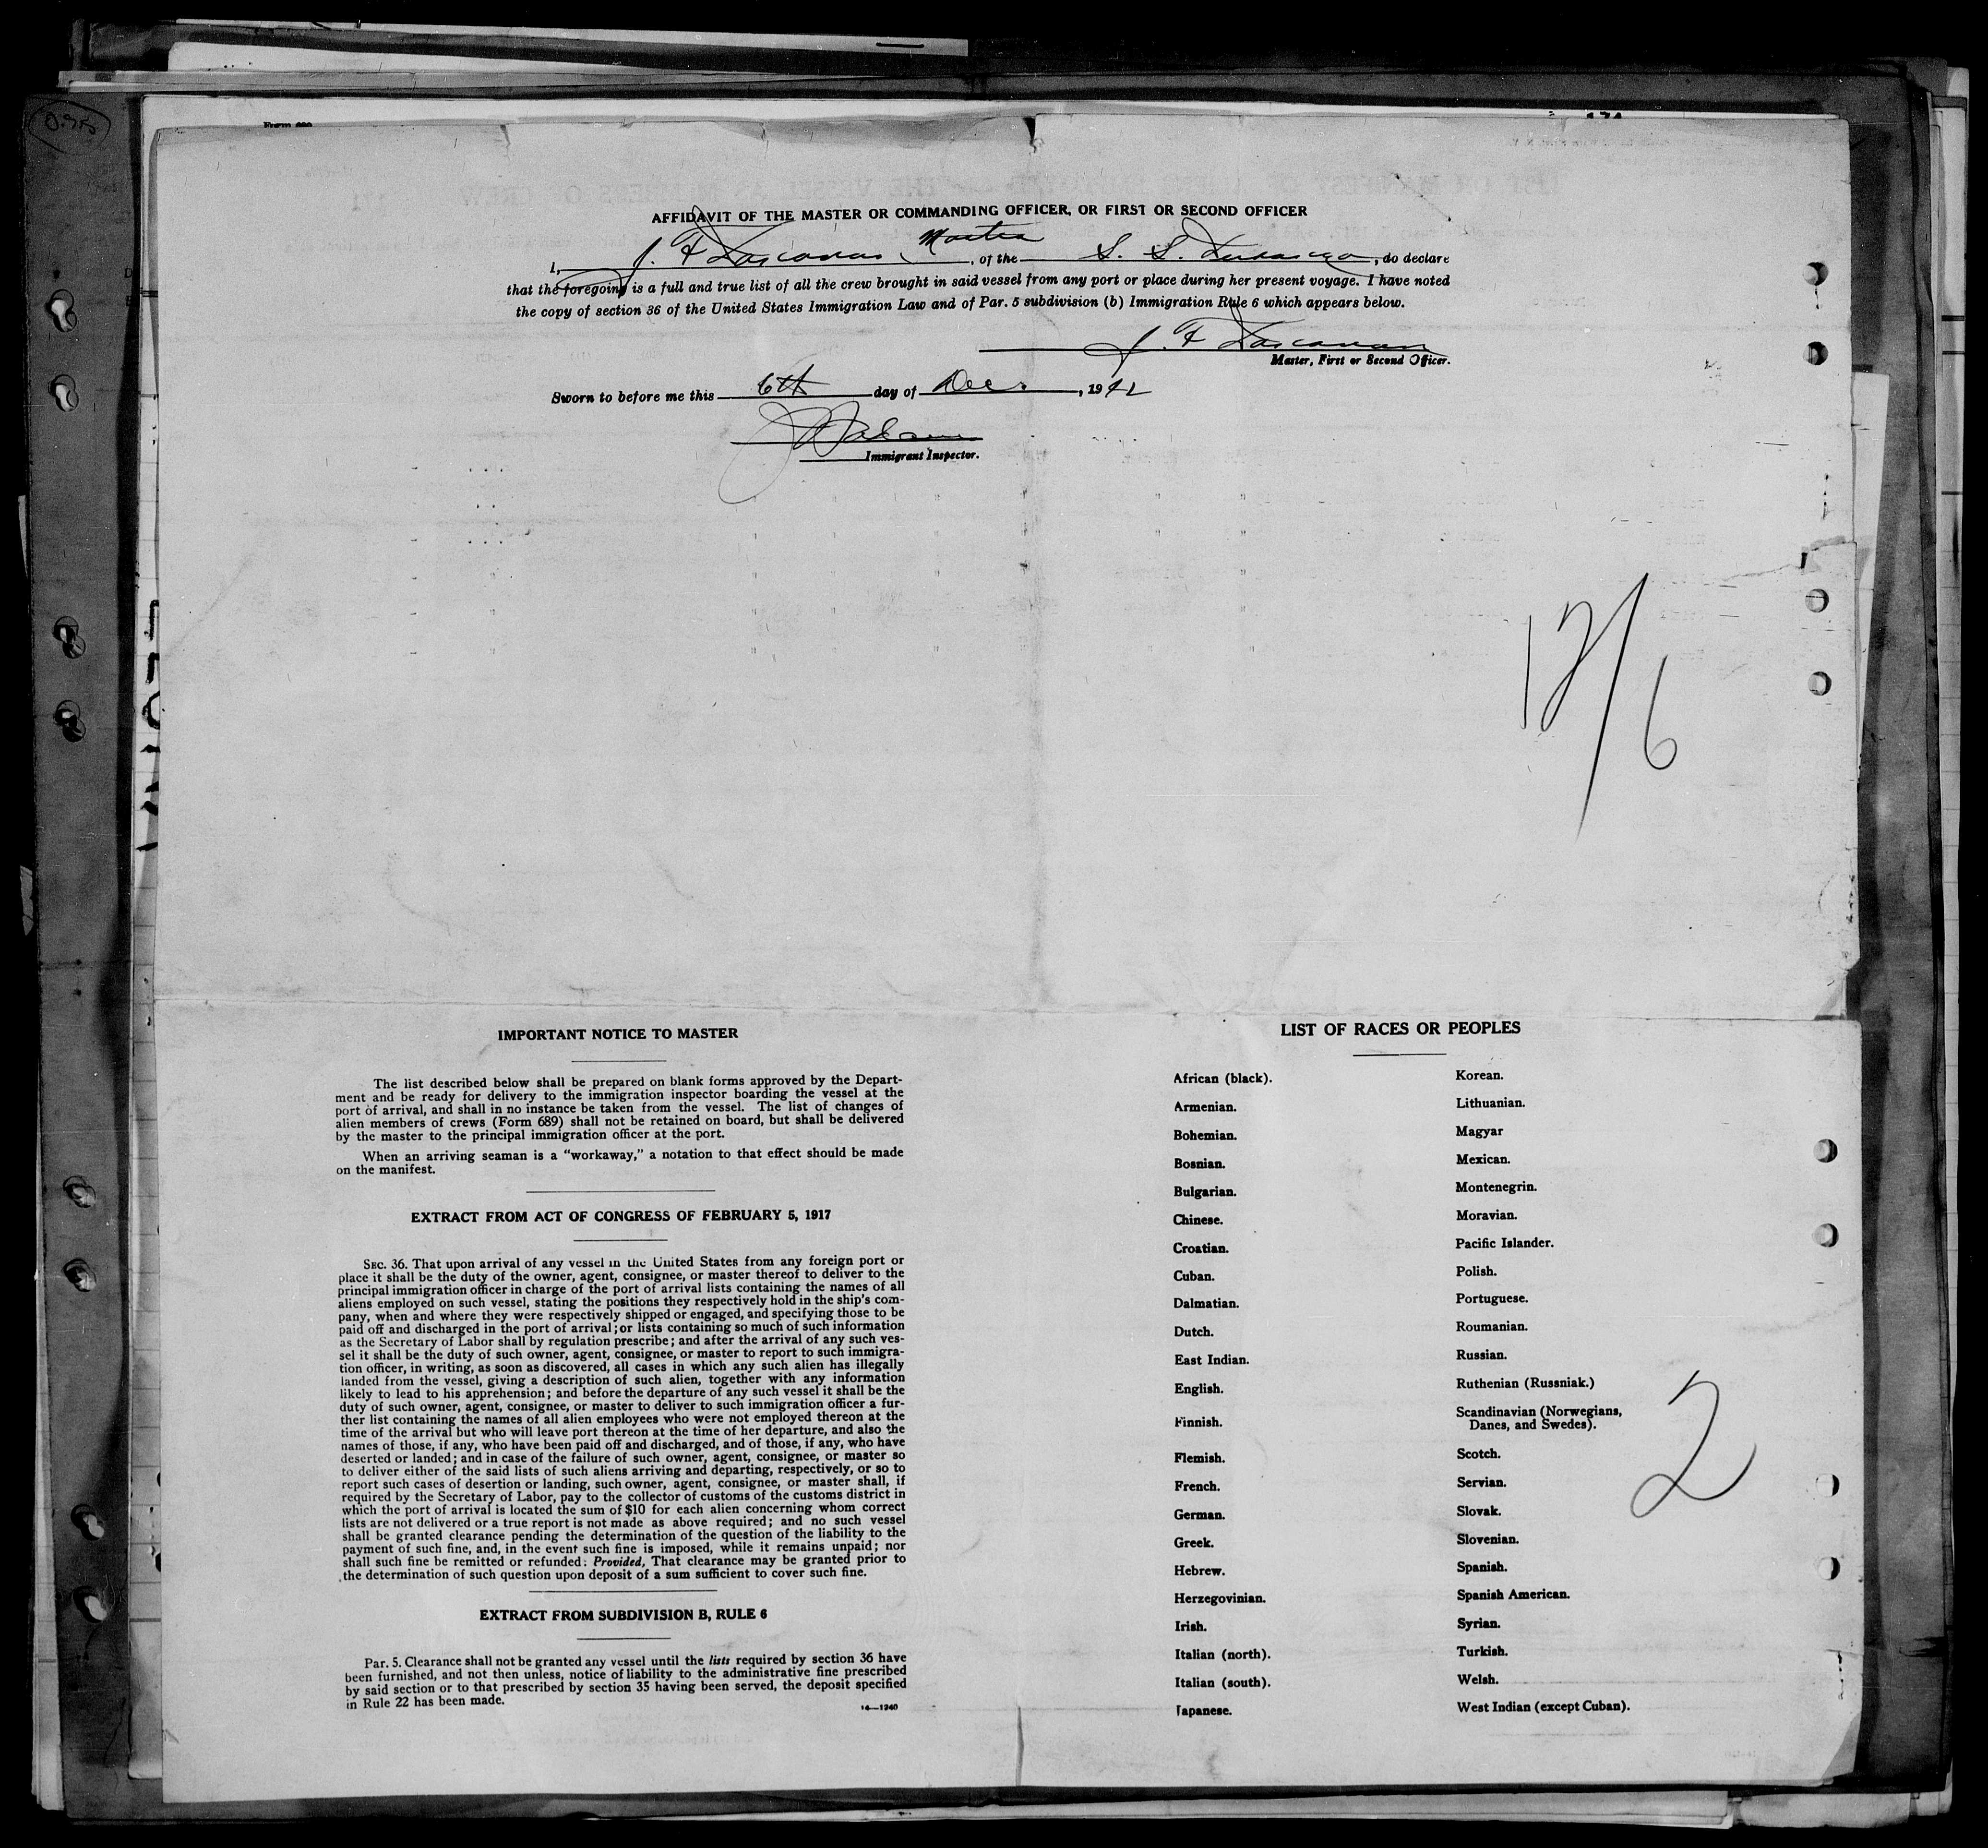 AFFIDAVIT OF THE MASTER OR COMMANDING OFFICER, OR FIRST OR SECOND OFFICER
I, J. F. Master, of the S. S. , do declare
that the foregoing is a full and true list of all the crew brought in said vessel from any port or place during her present voyage. I have noted
the copy of section 36 of the United States Immigration Law and of Par. 5 subdivision (b) Immigration Rule 6 which appears below.
J. F.
Master, First or Second Officer.
Sworn to before me this 6th day of Dec. , 19
Immigrant Inspector.
12/6
IMPORTANT NOTICE TO MASTER
The list described below shall be prepared on blank forms approved by the Depart-
ment and be ready for delivery to the immigration inspector boarding the vessel at the
port of arrival, and shall in no instance be taken from the vessel. The list of changes of
alien members of crews (Form 689) shall not be retained on board, but shall be delivered
by the master to the principal immigration officer at the port.
When an arriving seaman is a "workaway," a notation to that effect should be made
on the manifest.
EXTRACT FROM ACT OF CONGRESS OF FEBRUARY 5, 1917
SEC. 36. That upon arrival of any vessel in the United States from any foreign port or
place it shall be the duty of the owner, agent, consignee, or master thereof to deliver to the
principal immigration officer in charge of the port of arrival lists containing the names of all
aliens employed on such vessel, stating the positions they respectively hold in the ship's com-
pany, when and where they were respectively shipped or engaged, and specifying those to be
paid off and discharged in the port of arrival; or lists containing so much of such information
as the Secretary of Labor shall by regulation prescribe; and after the arrival of any such ves-
sel it shall be the duty of such owner, agent, consignee, or master to report to such immigra-
tion officer, in writing, as soon as discovered, all cases in which any such alien has illegally
landed from the vessel, giving a description of such alien, together with any information
likely to lead to his apprehension; and before the departure of any such vessel it shall be the
duty of such owner, agent, consignee, or master to deliver to such immigration officer a fur-
ther list containing the names of all alien employees who were not employed thereon at the
time of the arrival but who will leave port thereon at the time of her departure, and also the
names of those, if any, who have been paid off and discharged, and of those, if any, who have
deserted or landed; and in case of the failure of such owner, agent, consignee, or master so
to deliver either of the said lists of such aliens arriving and departing, respectively, or so to
report such cases of desertion or landing, such owner, agent, consignee, or master shall, if
required by the Secretary of Labor, pay to the collector of customs of the customs district in
which the port of arrival is located the sum of $10 for each alien concerning whom correct
lists are not delivered or a true report is not made as above required; and no such vessel
shall be granted clearance pending the determination of the question of the liability to the
payment of such fine, and, in the event such fine is imposed, while it remains unpaid; nor
shall such fine be remitted or refunded: Provided, That clearance may be granted prior to
the determination of such question upon deposit of a sum sufficient to cover such fine.
EXTRACT FROM SUBDIVISION B, RULE 6
Par. 5. Clearance shall not be granted any vessel until the lists required by section 36 have
been furnished, and not then unless, notice of liability to the administrative fine prescribed
by said section or to that prescribed by section 35 having been served, the deposit specified
in Rule 22 has been made.
14—1240
LIST OF RACES OR PEOPLES
African (black).
Armenian.
Bohemian.
Bosnian.
Bulgarian.
Chinese.
Croatian.
Cuban.
Dalmatian.
Dutch.
East Indian.
English.
Finnish.
Flemish.
French.
German.
Greek.
Hebrew.
Herzegovinian.
Irish.
Italian (north).
Italian (south).
Japanese.
Korean.
Lithuanian.
Magyar
Mexican.
Montenegrin.
Moravian.
Pacific Islander.
Polish.
Portuguese.
Roumanian.
Russian.
Ruthenian (Russniak.)
Scandinavian (Norwegians,
Danes, and Swedes).
Scotch.
Servian.
Slovak.
Slovenian.
Spanish.
Spanish American.
Syrian.
Turkish.
Welsh.
West Indian (except Cuban).
2